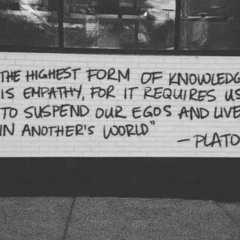 THE HIGHEST FORM OF KNOWLEDG
IS EMPATHY, FOR IT REQUIRES US
TO SUSPEND OUR EGOS AND LIVE
IN ANOTHER'S WORLD"
—PLATO